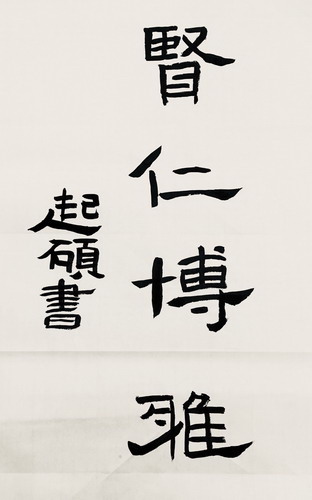 賢仁博雅
起碩書